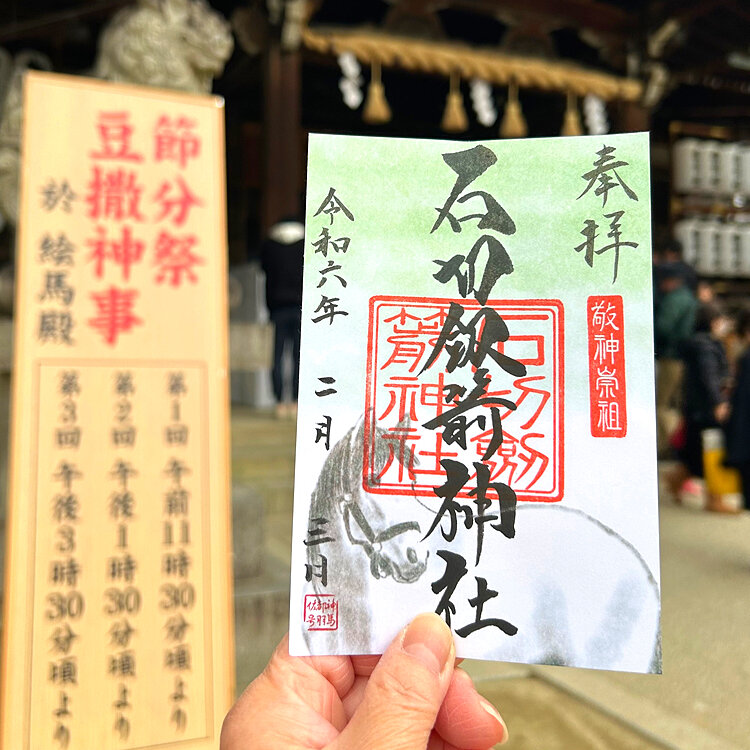 節分祭
豆撒神事
於 絵馬殿
第1回 午前11時30分頃より
第2回 午後1時30分頃より
第3回 午後3時30分頃より
奉拝
敬神崇祖
石切劔箭神社
石切劔
箭神社
令和六年 二月 三日
神馬
都羽
佐号